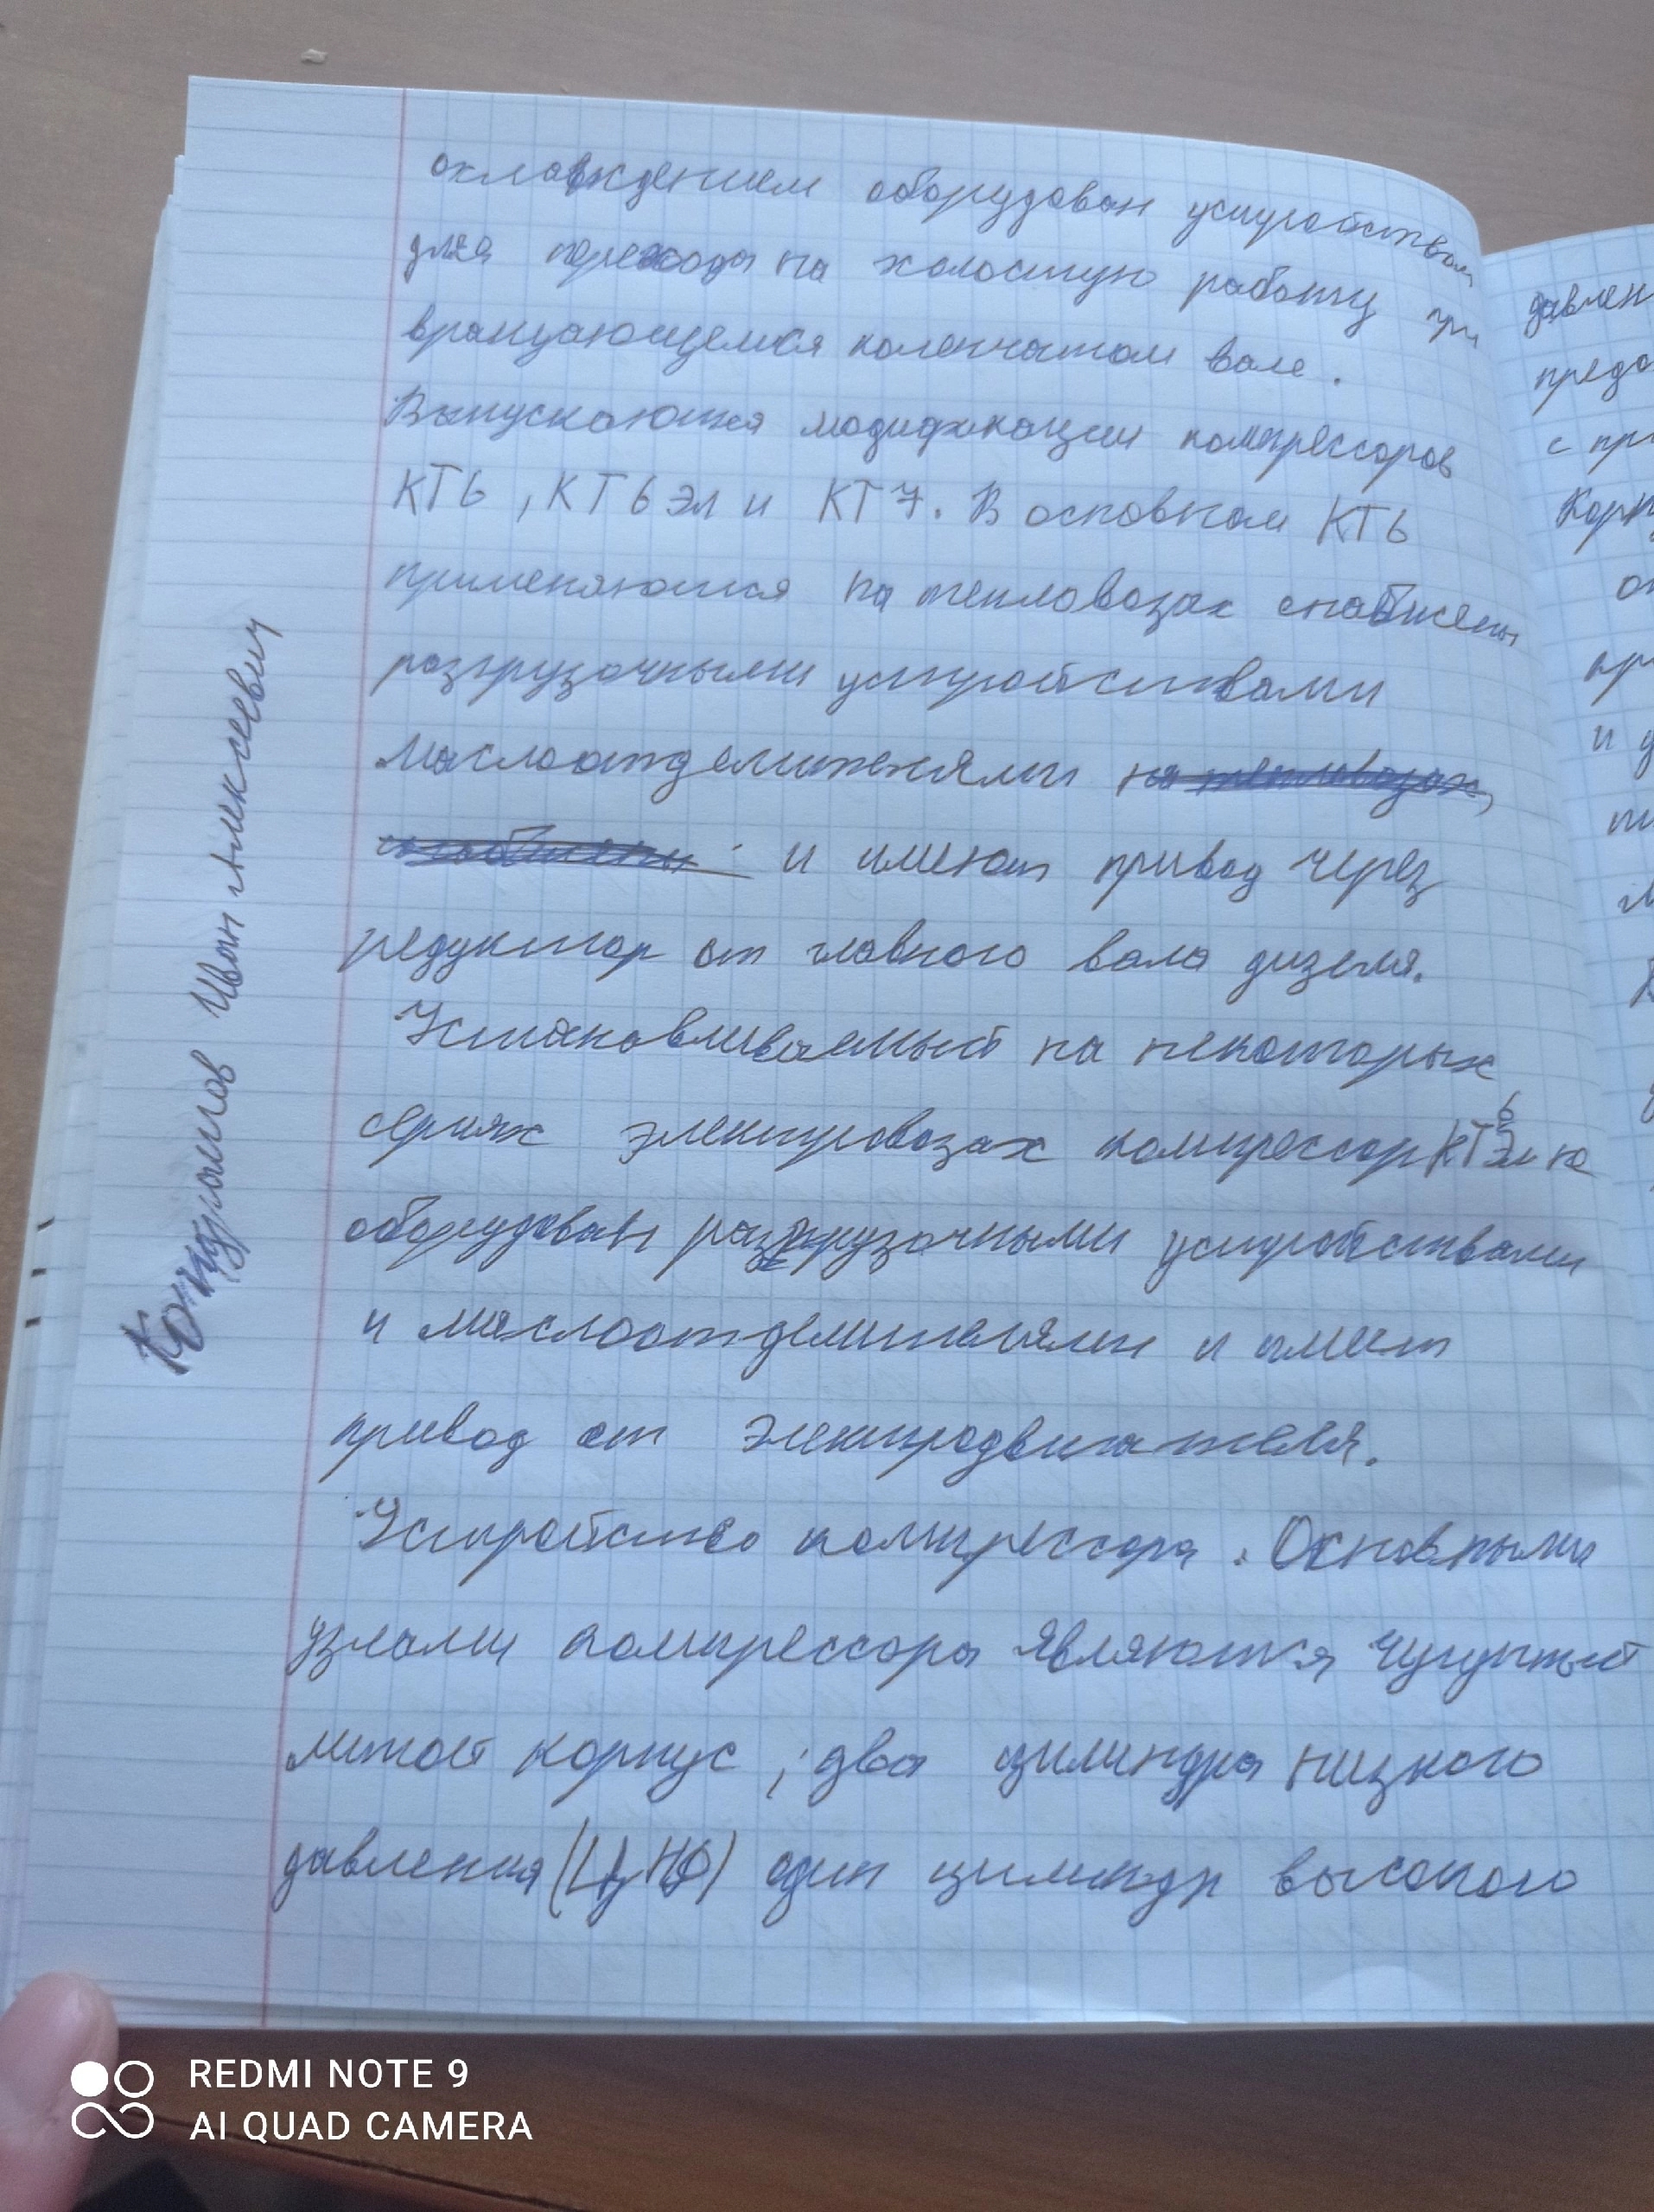 охлаждением оборудован устройством
для перехода на холостую работу при
вращающемся коленчатом вале.
Выпускаются модификации компрессоров
КТ6, КТ6 эл и КТ7. В основном КТ6
применяются на тепловозах снабжены
разгрузочными устройствами
маслоотделителями на тепловозах,
снабжены и имеют привод через
редуктор от главного вала дизеля.
Устанавливаемый на некоторых
сериях электровозах компрессор КТ6эл не
оборудован разгрузочными устройствами
и маслоотделителями и имеет
привод от электродвигателя.
Устройство компрессора. Основными
узлами компрессора являются чугунный
литой корпус, два цилиндра низкого
давления (ЦНД) один цилиндр высокого
Иван Алексеевич
давлен
с пр
REDMI NOTE 9
AI QUAD CAMERA